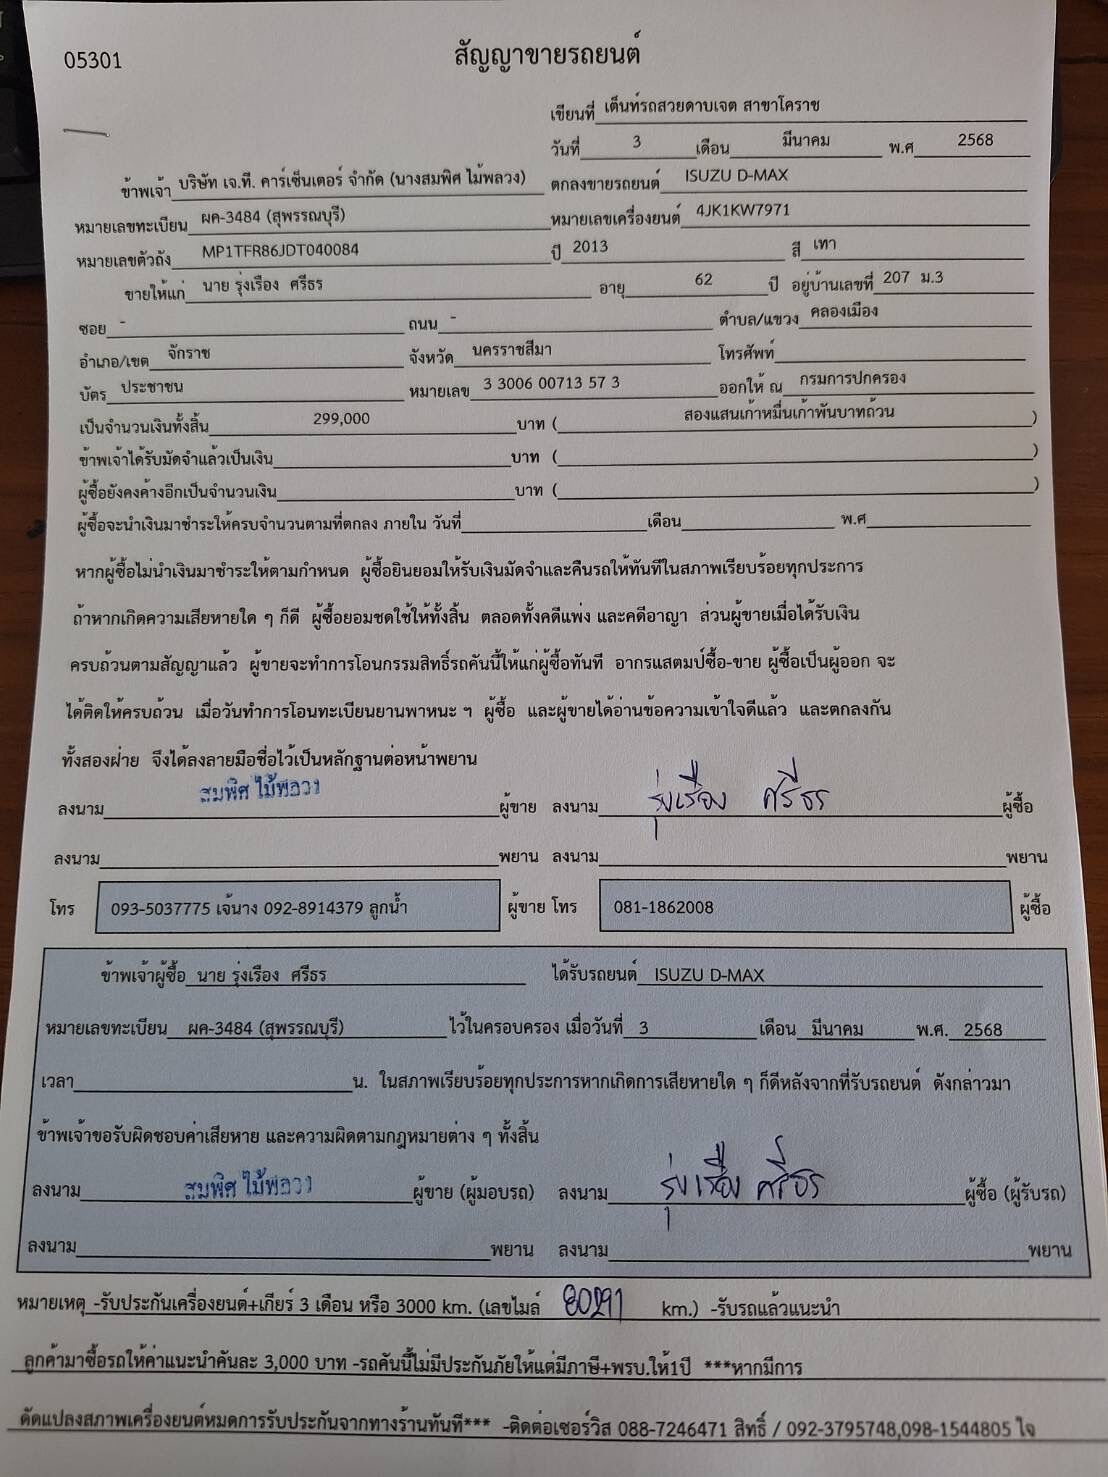 05301
สัญญาขายรถยนต์
เขียนที่ เต็นท์รถสวยดาบเจต สาขาโคราช
วันที่ 3 เดือน มีนาคม พ.ศ 2568
ข้าพเจ้า บริษัท เจ.ที. คาร์เซ็นเตอร์ จำกัด (นางสมพิศ ไม้พลวง) ตกลงขายรถยนต์ ISUZU D-MAX
หมายเลขทะเบียน ผค-3484 (สุพรรณบุรี) หมายเลขเครื่องยนต์ 4JK1KW7971
หมายเลขตัวถัง MP1TFR86JDT040084 ปี 2013 สี เทา
ขายให้แก่ นาย รุ่งเรือง ศรีธร อายุ 62 ปี อยู่บ้านเลขที่ 207 ม.3
ซอย - ถนน - ตำบล/แขวง คลองเมือง
อำเภอ/เขต จักราช จังหวัด นครราชสีมา โทรศัพท์
บัตร ประชาชน หมายเลข 3 3006 00713 57 3 ออกให้ ณ กรมการปกครอง
เป็นจำนวนเงินทั้งสิ้น 299,000 บาท ( สองแสนเก้าหมื่นเก้าพันบาทถ้วน )
ข้าพเจ้าได้รับมัดจำแล้วเป็นเงิน บาท ( )
ผู้ซื้อยังคงค้างอีกเป็นจำนวนเงิน บาท ( )
ผู้ซื้อจะนำเงินมาชำระให้ครบจำนวนตามที่ตกลง ภายใน วันที่ เดือน พ.ศ
หากผู้ซื้อไม่นำเงินมาชำระให้ตามกำหนด ผู้ซื้อยินยอมให้รับเงินมัดจำและคืนรถให้ทันทีในสภาพเรียบร้อยทุกประการ
ถ้าหากเกิดความเสียหายใด ๆ ก็ดี ผู้ซื้อยอมชดใช้ให้ทั้งสิ้น ตลอดทั้งคดีแพ่ง และคดีอาญา ส่วนผู้ขายเมื่อได้รับเงิน
ครบถ้วนตามสัญญาแล้ว ผู้ขายจะทำการโอนกรรมสิทธิ์รถคันนี้ให้แก่ผู้ซื้อทันที อากรแสตมป์ซื้อ-ขาย ผู้ซื้อเป็นผู้ออก จะ
ได้ติดให้ครบถ้วน เมื่อวันทำการโอนทะเบียนยานพาหนะ ฯ ผู้ซื้อ และผู้ขายได้อ่านข้อความเข้าใจดีแล้ว และตกลงกัน
ทั้งสองฝ่าย จึงได้ลงลายมือชื่อไว้เป็นหลักฐานต่อหน้าพยาน
ลงนาม สมพิศ ไม้พลวง ผู้ขาย ลงนาม รุ่งเรือง ศรีธร ผู้ซื้อ
ลงนาม พยาน ลงนาม พยาน
โทร 093-5037775 เจ้นาง 092-8914379 ลูกน้ำ ผู้ขาย โทร 081-1862008 ผู้ซื้อ
ข้าพเจ้าผู้ซื้อ นาย รุ่งเรือง ศรีธร ได้รับรถยนต์ ISUZU D-MAX
หมายเลขทะเบียน ผค-3484 (สุพรรณบุรี) ไว้ในครอบครอง เมื่อวันที่ 3 เดือน มีนาคม พ.ศ. 2568
เวลา น. ในสภาพเรียบร้อยทุกประการหากเกิดการเสียหายใด ๆ ก็ดีหลังจากที่รับรถยนต์ ดังกล่าวมา
ข้าพเจ้าขอรับผิดชอบค่าเสียหาย และความผิดตามกฎหมายต่าง ๆ ทั้งสิ้น
ลงนาม สมพิศ ไม้พลวง ผู้ขาย (ผู้มอบรถ) ลงนาม รุ่งเรือง ศรีธร ผู้ซื้อ (ผู้รับรถ)
ลงนาม พยาน ลงนาม พยาน
หมายเหตุ -รับประกันเครื่องยนต์+เกียร์ 3 เดือน หรือ 3000 km. (เลขไมล์ 80291 km.) -รับรถแล้วแนะนำ
ลูกค้ามาซื้อรถให้ค่าแนะนำคันละ 3,000 บาท -รถคันนี้ไม่มีประกันภัยให้แต่มีภาษี+พรบ.ให้1ปี ***หากมีการ
ดัดแปลงสภาพเครื่องยนต์หมดการรับประกันจากทางร้านทันที*** -ติดต่อเซอร์วิส 088-7246471 สิทธิ์ / 092-3795748,098-1544805 ใจ